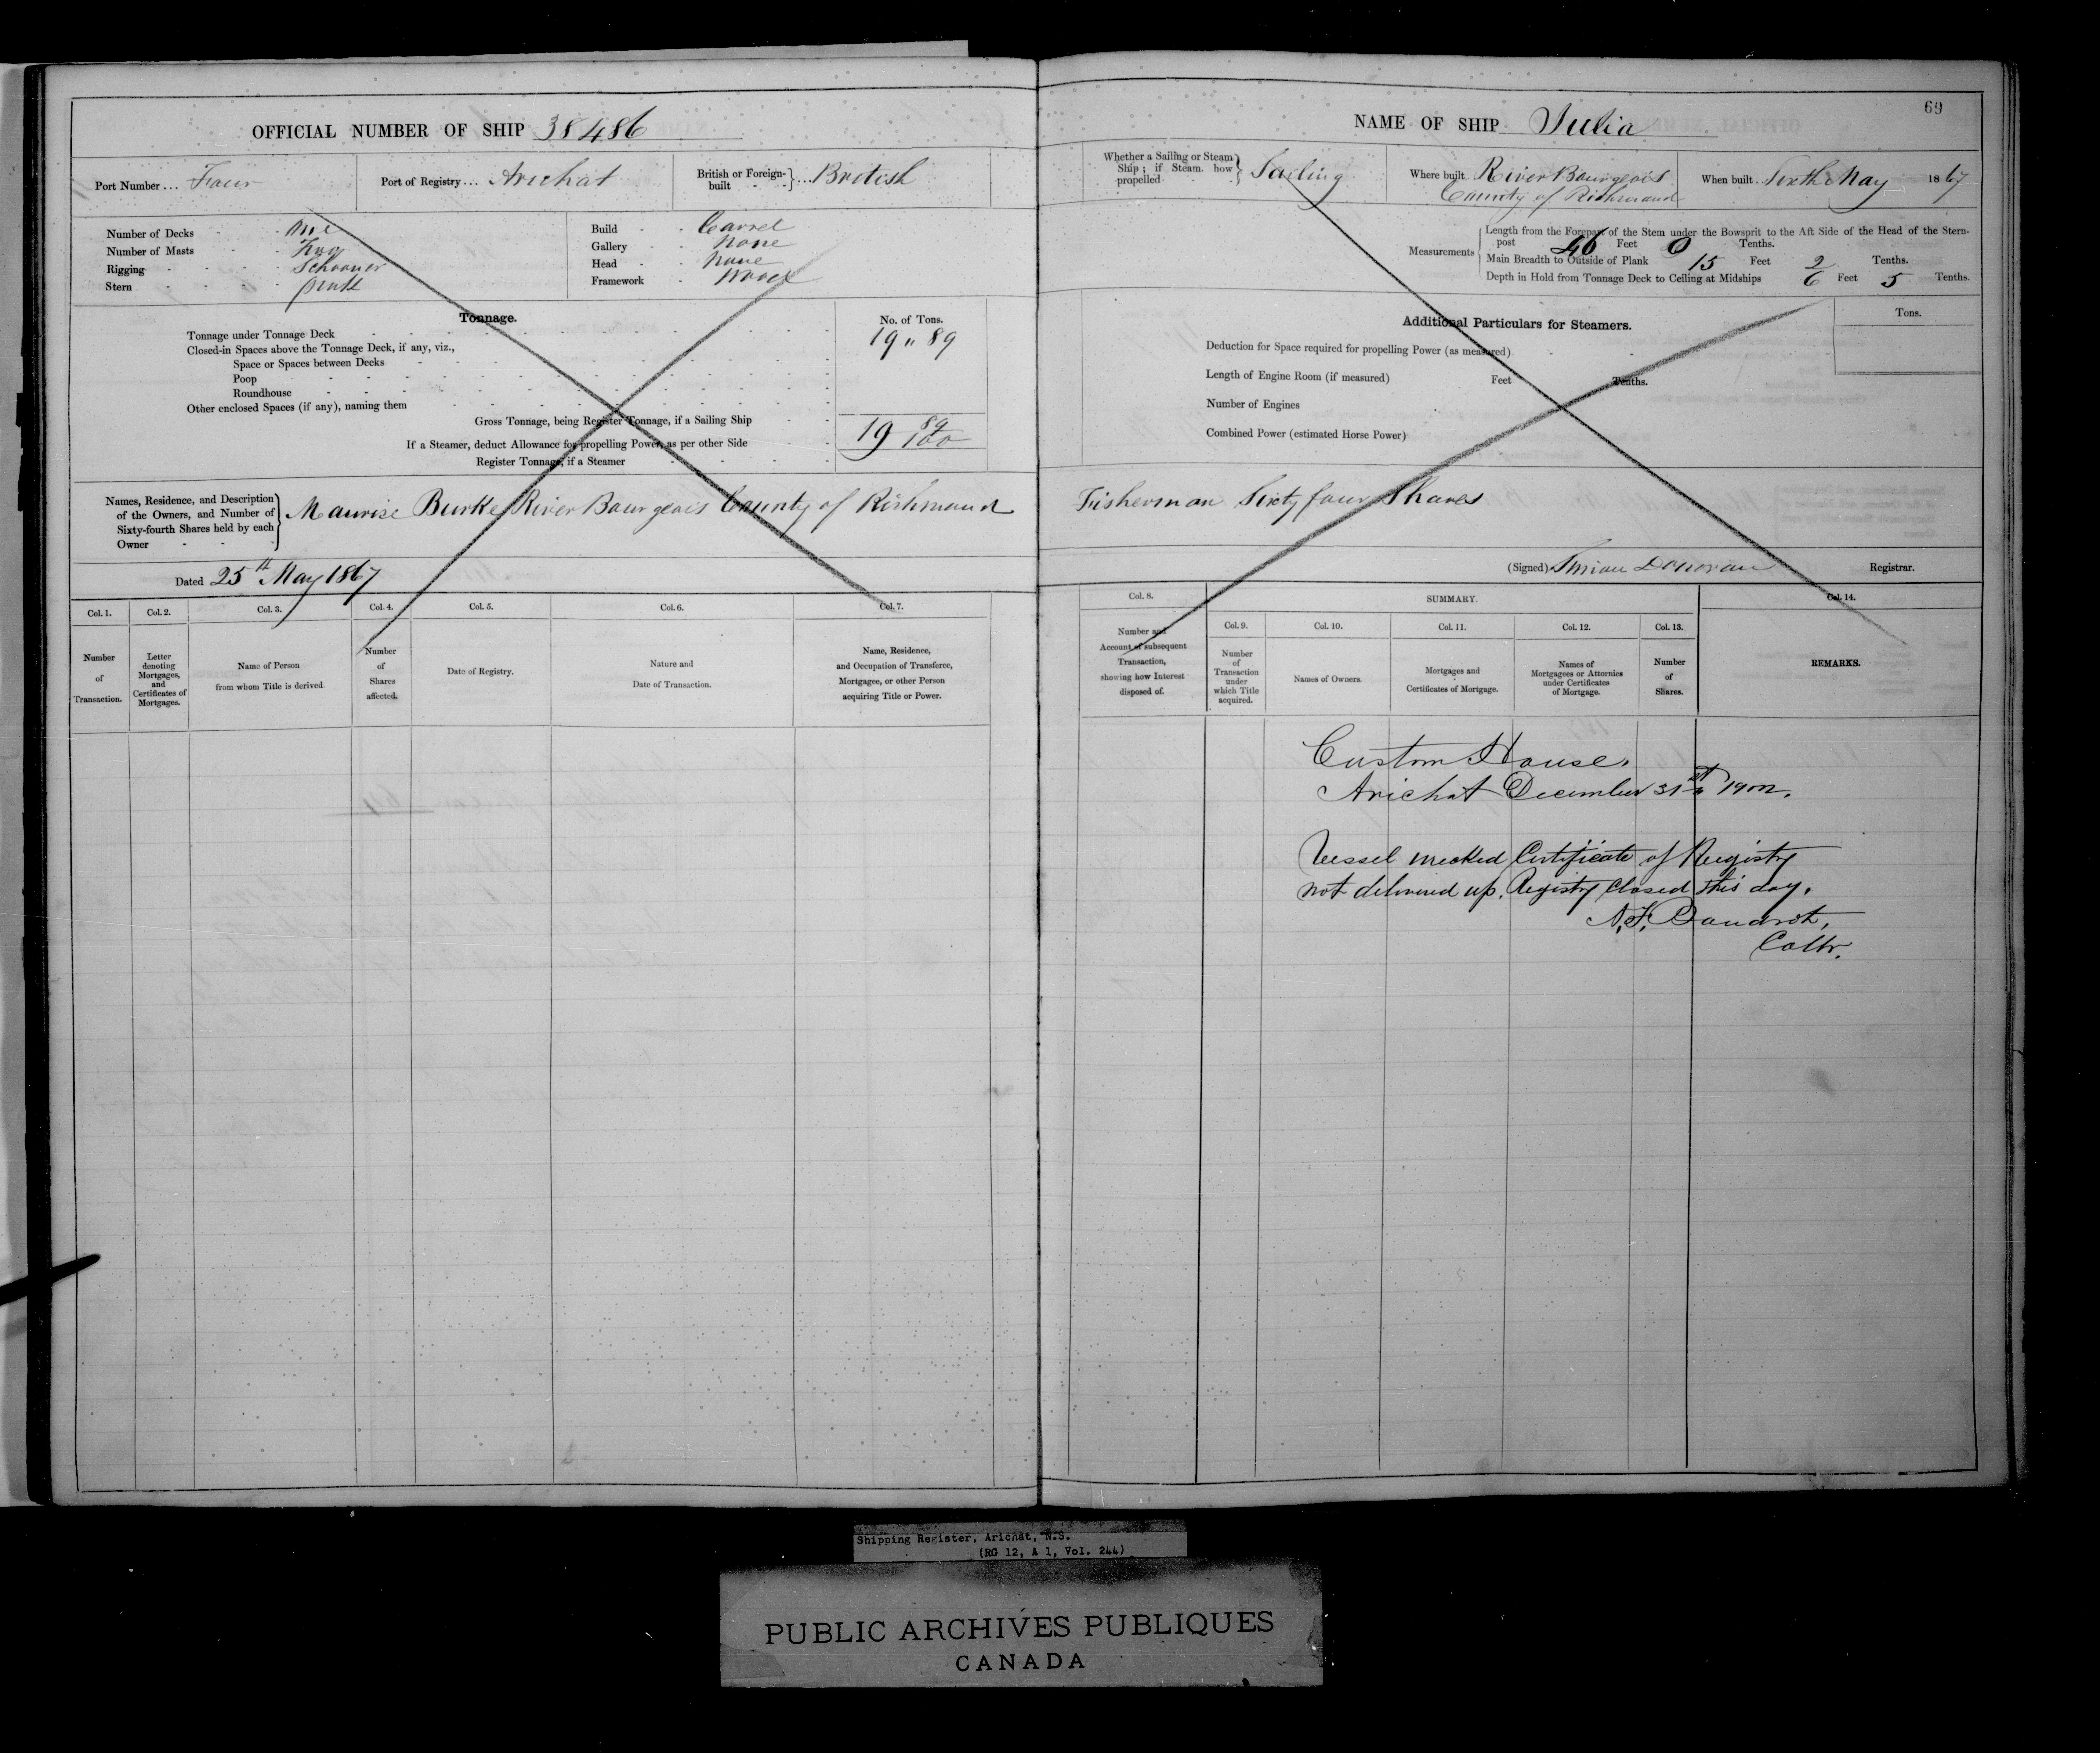 OFFICIAL NUMBER OF SHIP 38486
Port Number ... Four
Port of Registry ... Arichat
British or Foreign-built } ... British
Number of Decks - - One
Number of Masts - - Two
Rigging - - - - Schooner
Stern - - - -
Build - - Carvel
Gallery - - None
Head - - None
Framework - Wood
Tonnage.
No. of Tons.
Tonnage under Tonnage Deck 19 " 89
Closed-in Spaces above the Tonnage Deck, if any, viz.,
Space or Spaces between Decks
Poop
Roundhouse
Other enclosed Spaces (if any), naming them
Gross Tonnage, being Register Tonnage, if a Sailing Ship
If a Steamer, deduct Allowance for propelling Power, as per other Side
19 89/100
Register Tonnage, if a Steamer
Names, Residence, and Description
of the Owners, and Number of
Sixty-fourth Shares held by each
Owner - - -
Maurise Burke River Bourgeois County of Richmond
Dated 25th May 1867
Col. 1.
Col. 2.
Col. 3.
Col. 4.
Col. 5.
Col. 6.
Col. 7.
Number
of
Transaction.
Letter
denoting
Mortgages,
and
Certificates of
Mortgages.
Name of Person
from whom Title is derived.
Number
of
Shares
affected.
Date of Registry.
Nature and
Date of Transaction.
Name, Residence,
and Occupation of Transferee,
Mortgagee, or other Person
acquiring Title or Power.
69
NAME OF SHIP Julia
Whether a Sailing or Steam
Ship ; if Steam, how
propelled -
Sailing
Where built River Bourgeois
County of Richmond
When built Sixth May 1867
Measurements
Length from the Forepart of the Stem under the Bowsprit to the Aft Side of the Head of the Stern-
post 46 Feet 0 Tenths.
Main Breadth to Outside of Plank 15 Feet 2 Tenths.
Depth in Hold from Tonnage Deck to Ceiling at Midships 6 Feet 5 Tenths.
Additional Particulars for Steamers.
Tons.
Deduction for Space required for propelling Power (as measured)
Length of Engine Room (if measured) Feet Tenths.
Number of Engines
Combined Power (estimated Horse Power)
Fisherman Sixty four Shares
(Signed) Donovan Registrar.
Col. 8.
SUMMARY.
Col. 14.
Col. 9.
Col. 10.
Col. 11.
Col. 12.
Col. 13.
Number and
Account of subsequent
Transaction,
showing how Interest
disposed of.
Number
of
Transaction
under
which Title
acquired.
Names of Owners.
Mortgages and
Certificates of Mortgage.
Names of
Mortgagees or Attornies
under Certificates
of Mortgage.
Number
of
Shares.
REMARKS.
Custom House,
Arichat December 31st
Vessel wrecked Certificate of Registry
not delivered up. Registry closed this day.
Collr.
Shipping Register, Arichat, N.S.
(RG 12, A 1, Vol. 244)
PUBLIC ARCHIVES PUBLIQUES
CANADA